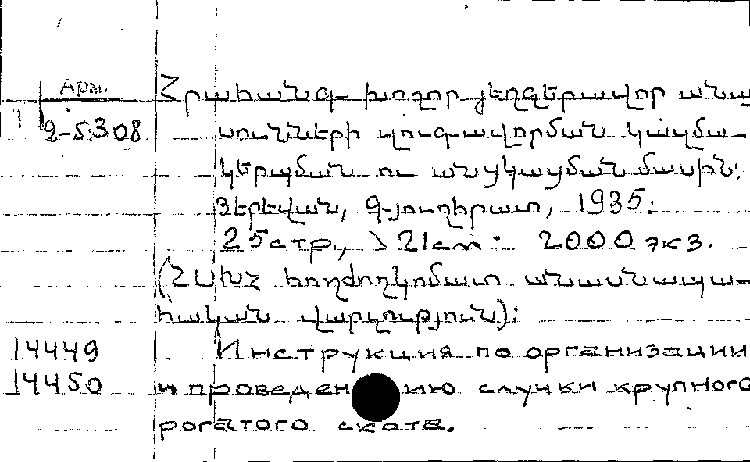 Арм.
2-5308
Հրահանգ խոշոր յեղջերավոր անա-
սունների զուգավորման կազմա-
կերպման ու անցկացման մասին:
Յերեվան, Գյուղհրատ, 1935:
25стр., 21см. 2000 экз.
(ՀՍԽՀ հողժողկոմատ անասնապա-
հական վարչություն):
14449 Инструкция по организации
14450 и проведению случки крупного
рогатого скота.